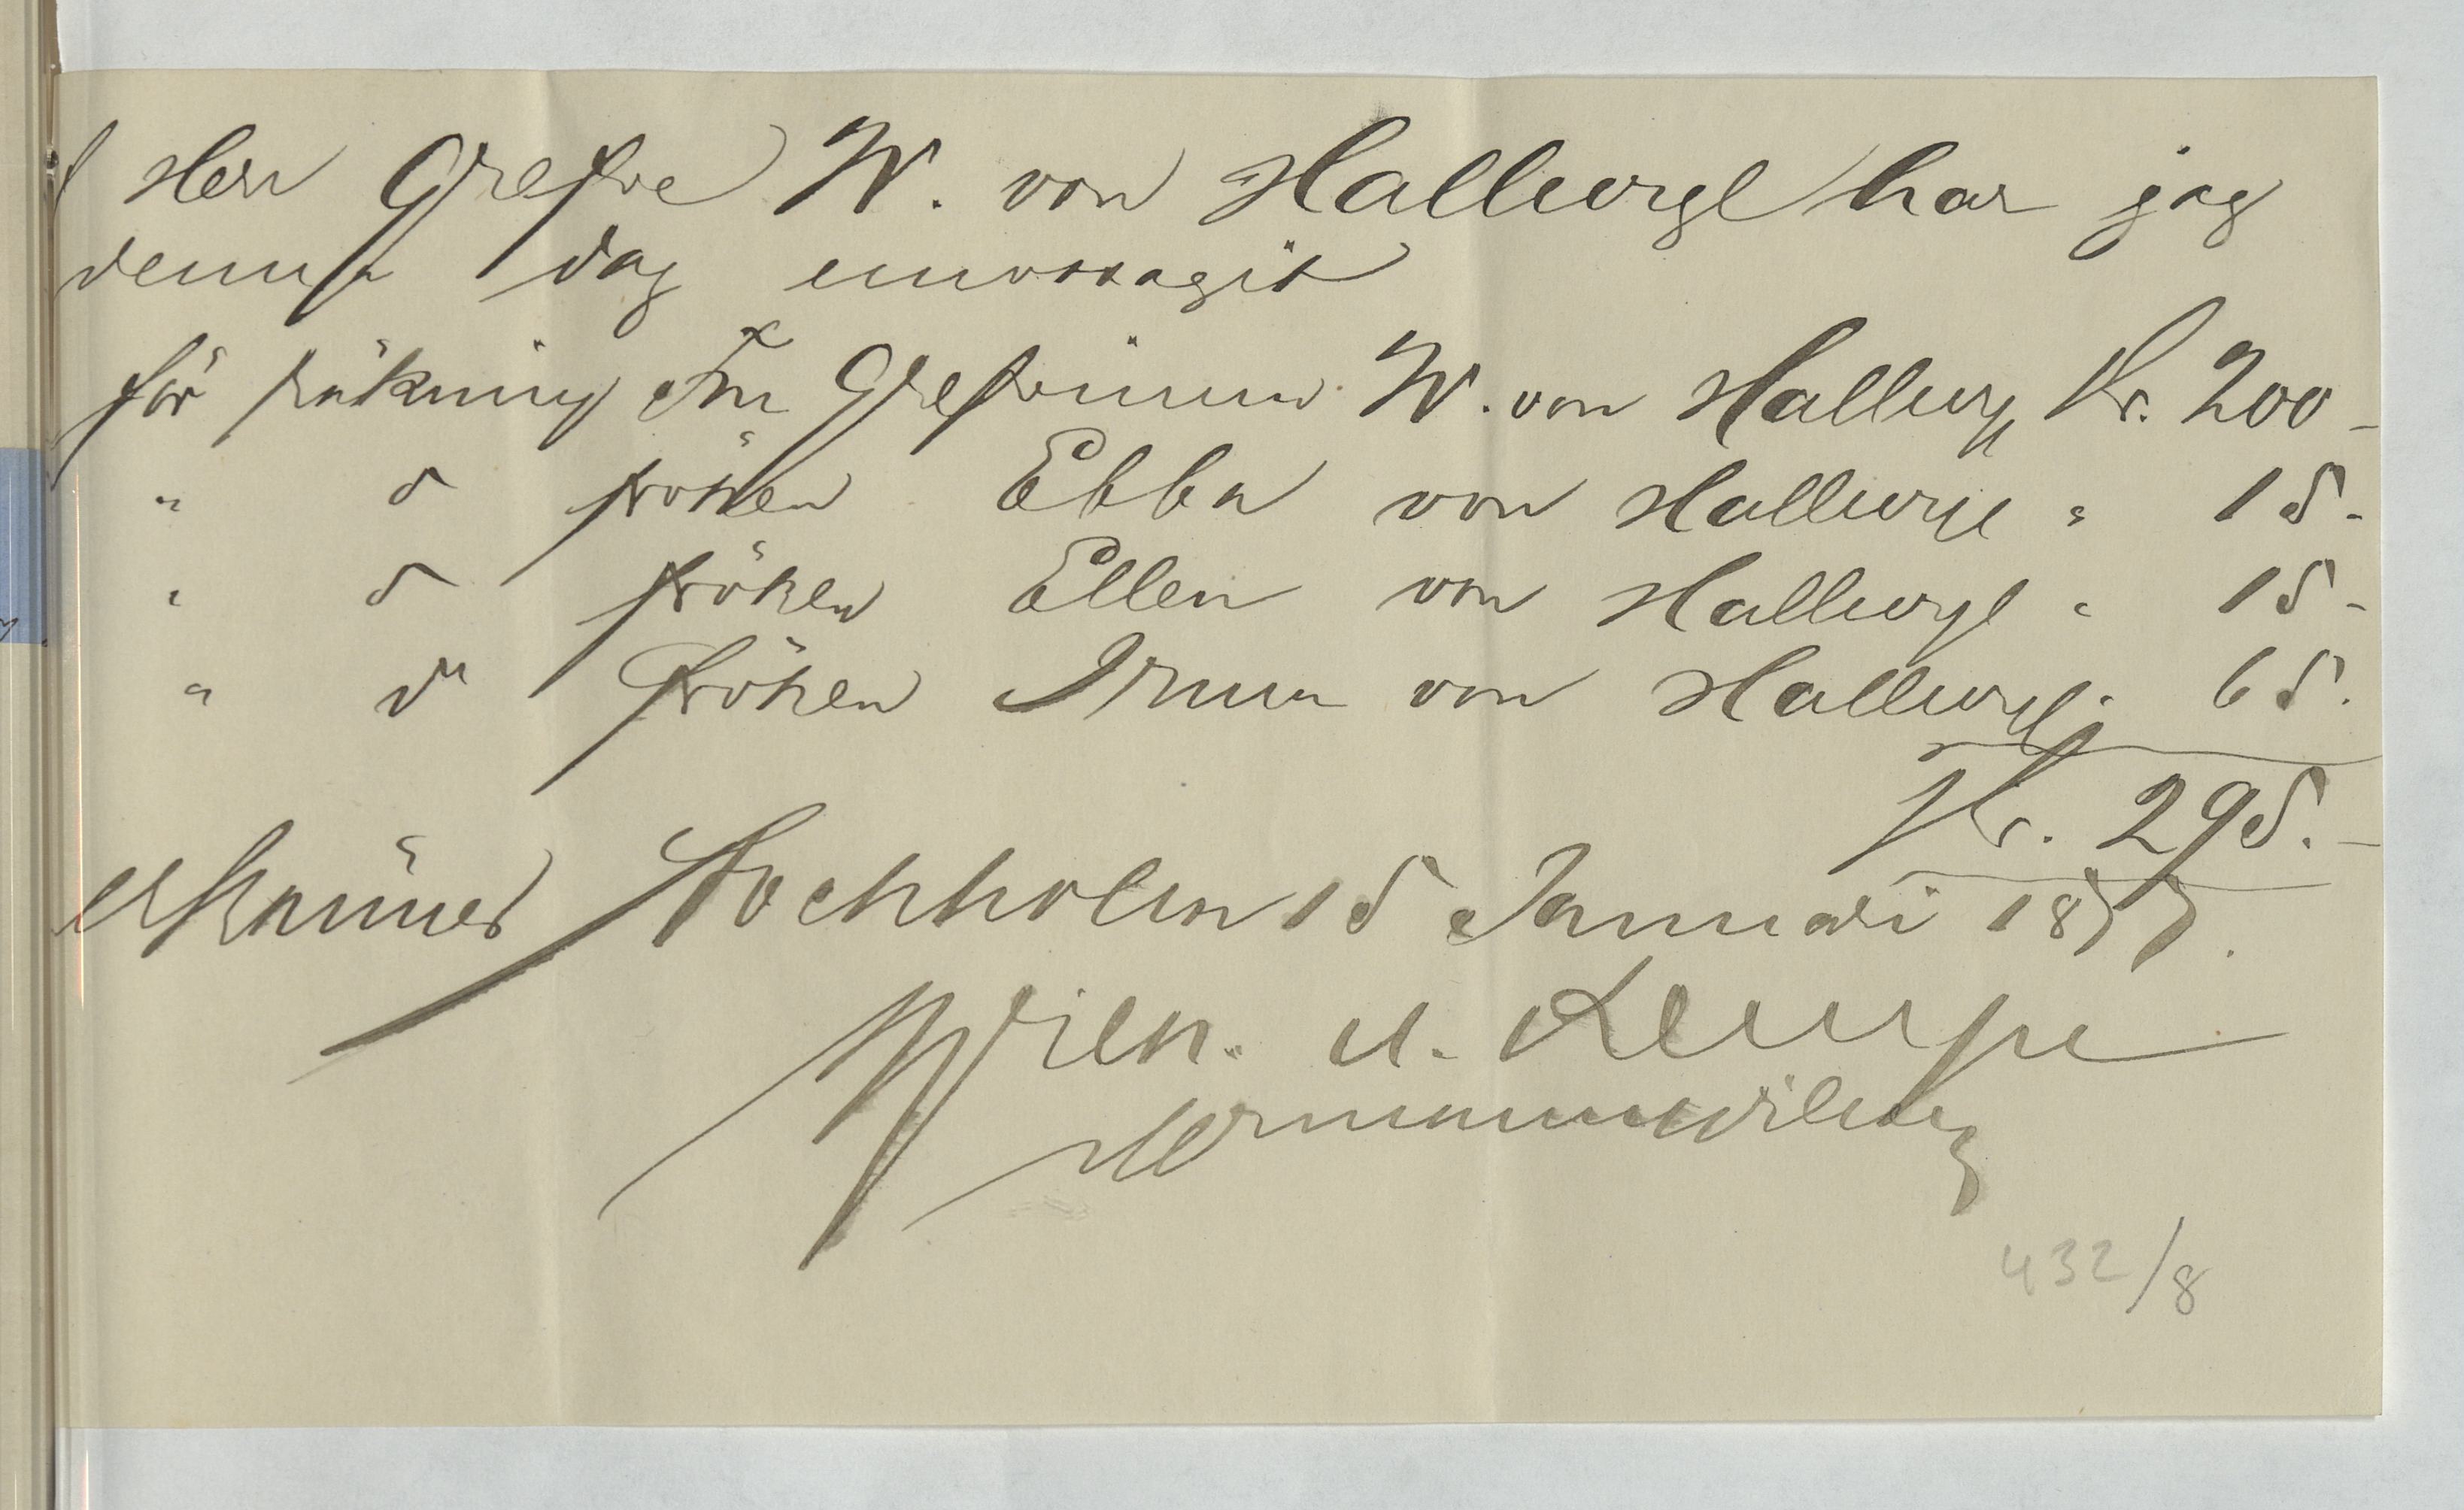 Herr Grefve W. von Hallwyl har jag
denna dag emottagit
för räkning Fru Grefvinnan W. von Hallwyl Kr. 200 –
" d fröken Ebba von Hallwyl " 15 -
" d fröken Ellen von Hallwyl " 15 -
" d fröken Irma von Hallwyl " 65.
Kr. 295. –
erkännes Stockholm 15 Januari 1877.
Wilh. u. Kempe
432/8